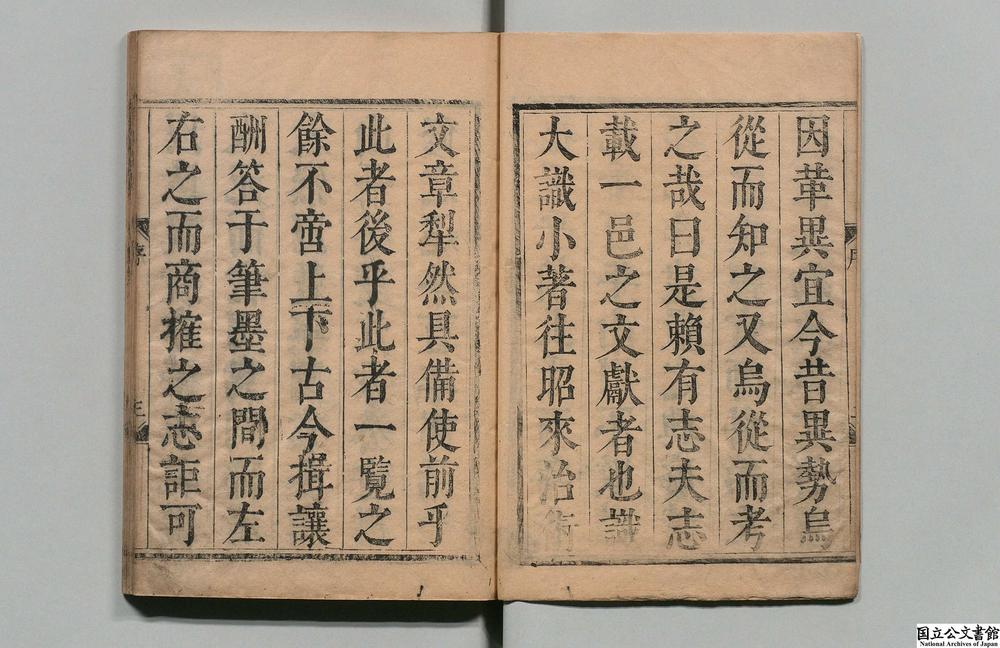 因革異宜今昔異勢烏
從而知之又烏從而考
之哉曰是賴有志夫志
載一邑之文獻者也識
大識小著往昭來治術
文章犁然具備使前乎
此者後乎此者一覽之
餘不啻上下古今揖讓
酬答于筆墨之間而左
右之而商搉之志詎可
序
国立公文書館
National Archives of Japan